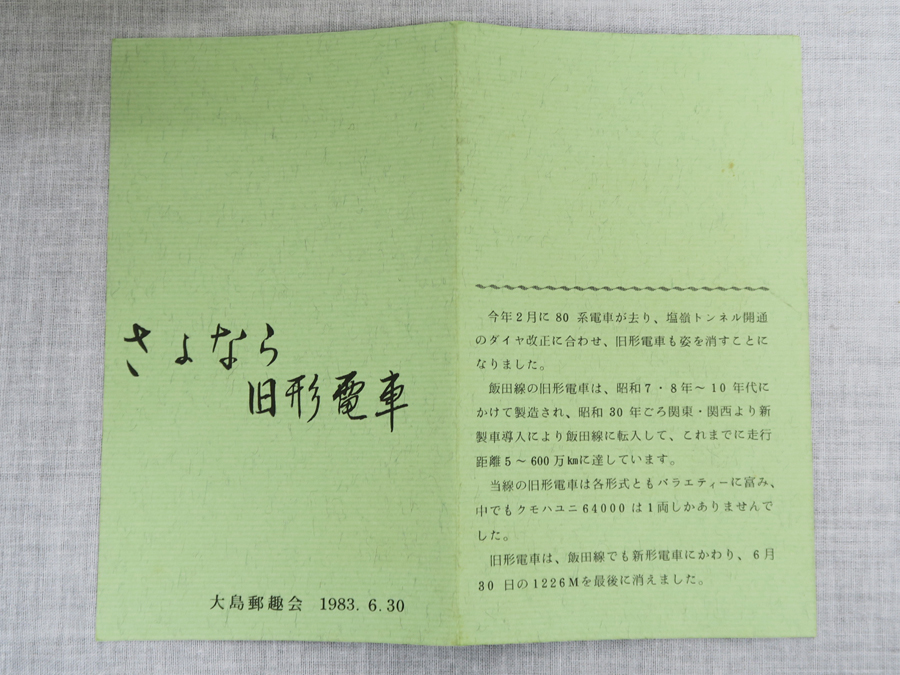 さよなら
旧形電車
大島郵趣会 1983. 6. 30
今年2月に 80 系電車が去り、塩嶺トンネル開通
のダイヤ改正に合わせ、旧形電車も姿を消すことに
なりました。
飯田線の旧形電車は、昭和7・8年〜 10 年代に
かけて製造され、昭和 30 年ごろ関東・関西より新
製車導入により飯田線に転入して、これまでに走行
距離5〜600万㎞に達しています。
当線の旧形電車は各形式ともバラエティーに富み、
中でもクモハユニ64000 は1両しかありませんで
した。
旧形電車は、飯田線でも新形電車にかわり、6月
30 日の1226Mを最後に消えました。